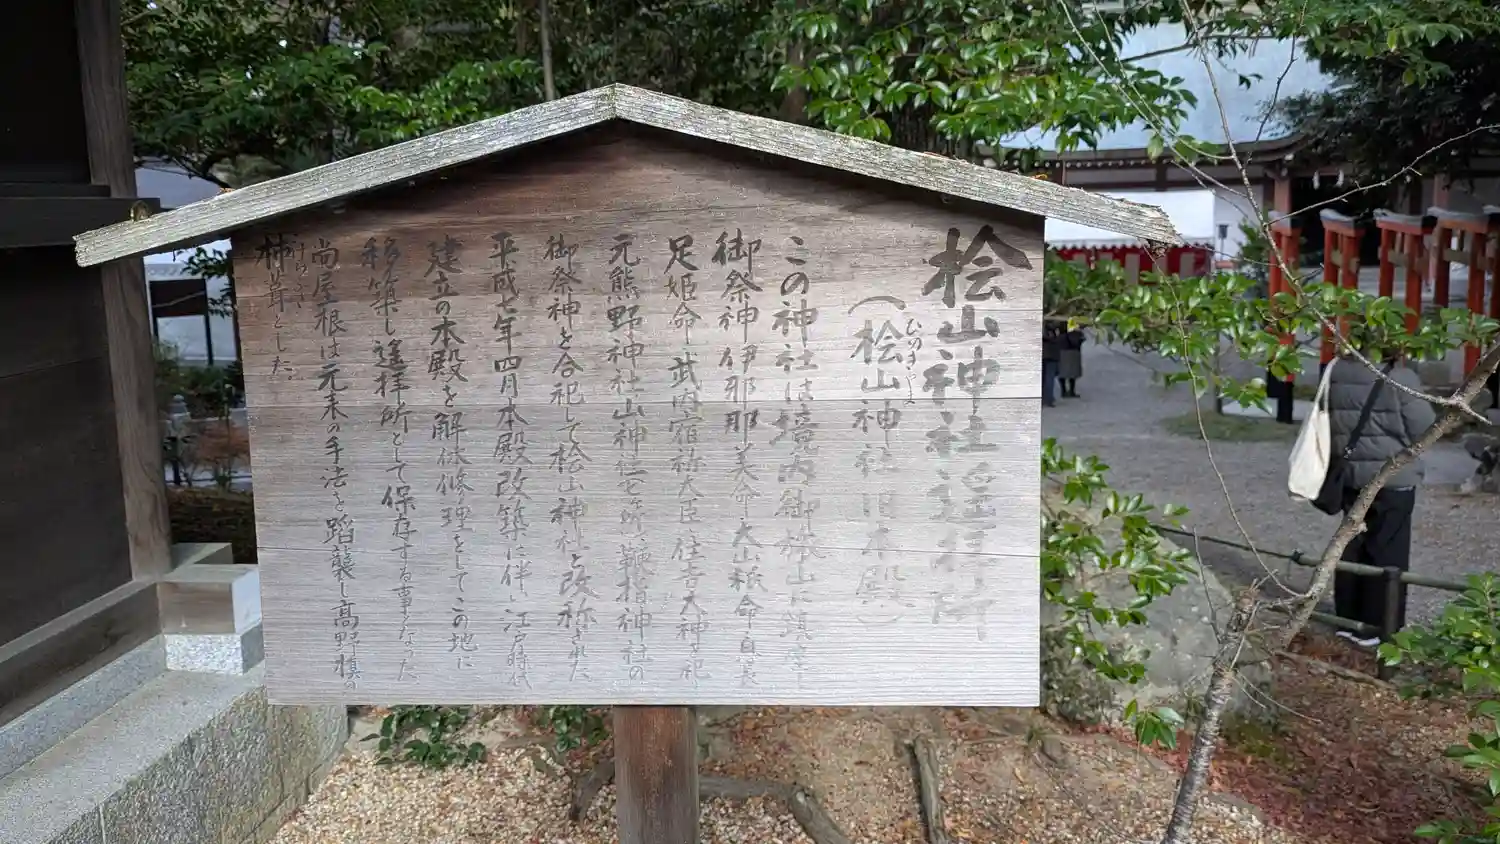 桧山神社遥拝所
(桧山神社旧本殿)
ひのきじんじょ
この神社は境内御旅山に鎮座し
御祭神伊邪那美命・大山祇命・息長
足姫命・武内宿祢大臣・住吉大神を祀
元熊野神社山神社 鞭指神社の
御祭神を合祀して桧山神社と改称された
平成七年四月本殿改築に伴い江戸時代
建立の本殿を解体修理をしてこの地に
移築し遥拝所として保存する事となった
尚屋根は元来の手法を蹈襲し高野槙の
柿葺とした。